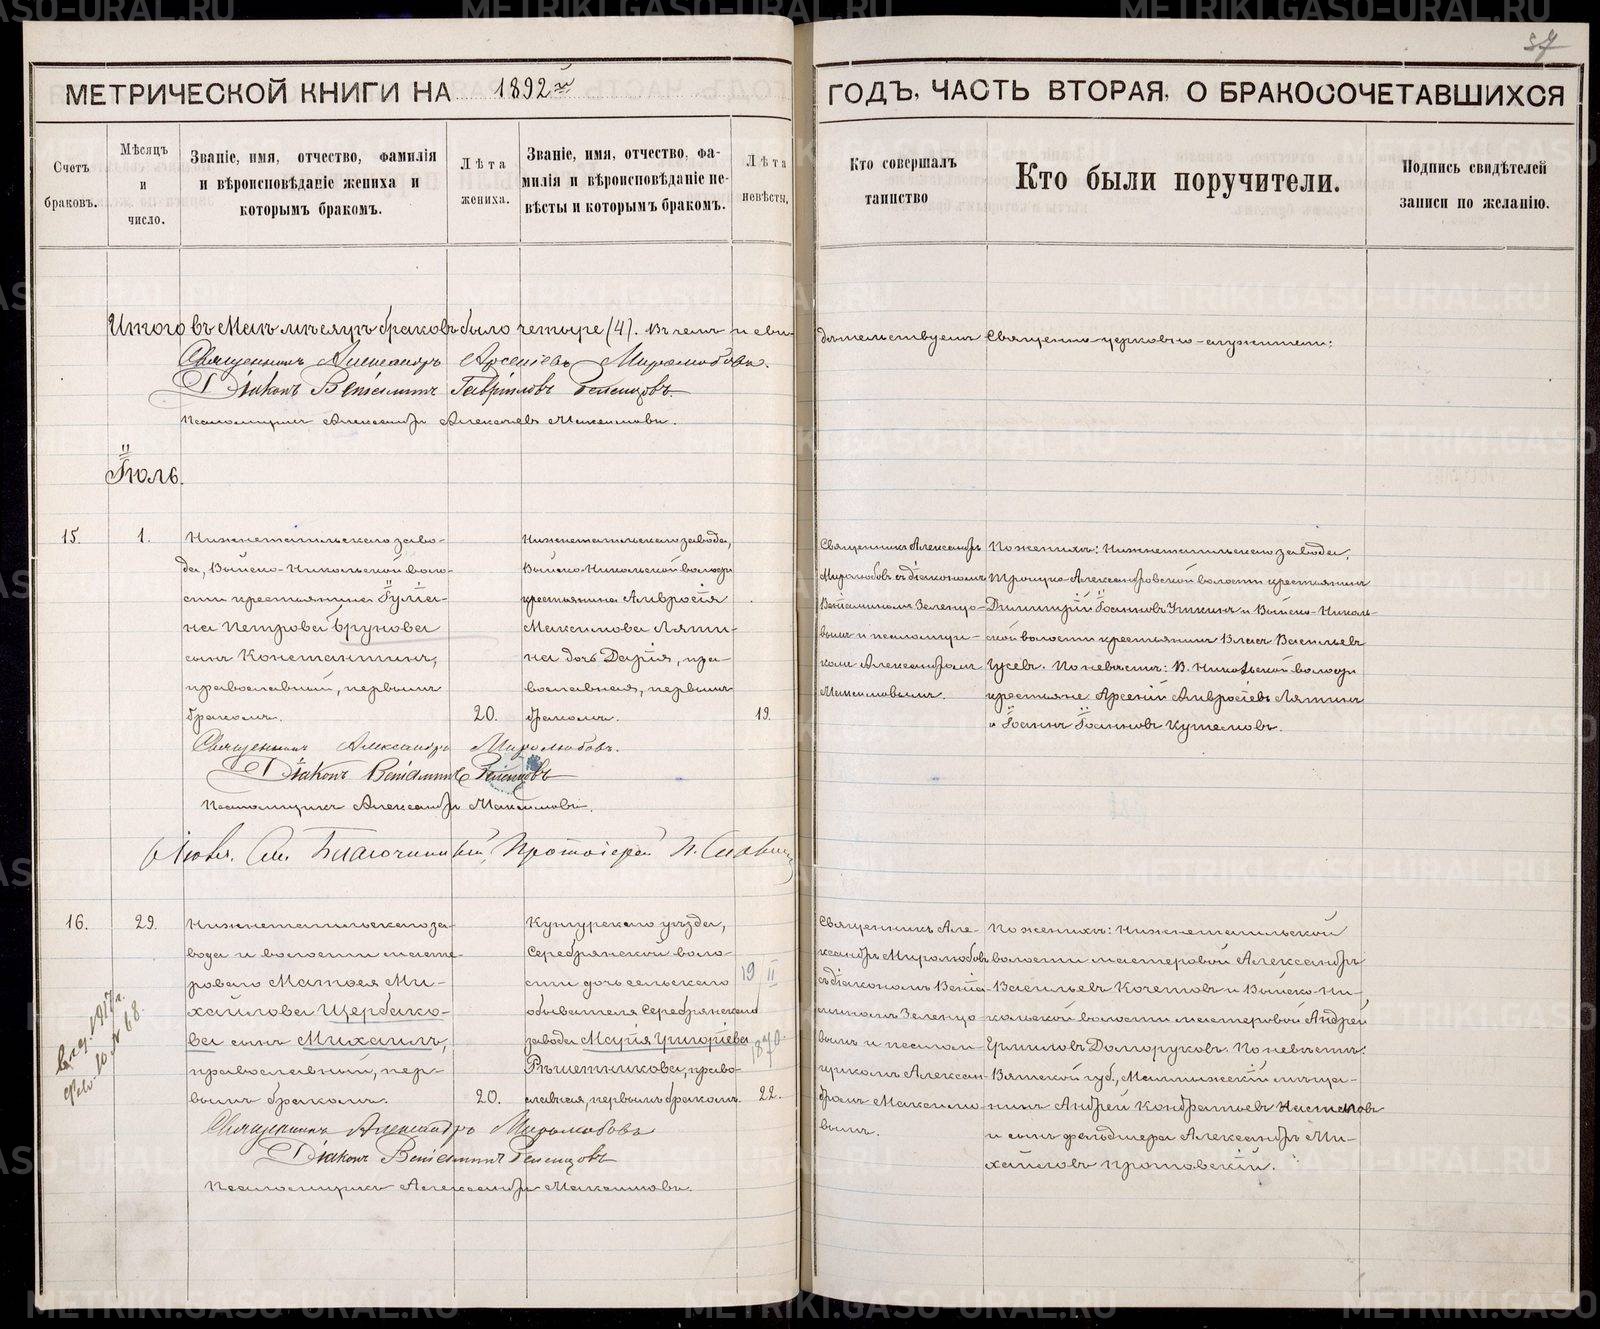 37
МЕТРИЧЕСКОЙ КНИГИ НА 1892й
ГОДЪ, ЧАСТЬ ВТОРАЯ, О БРАКОСОЧЕТАВШИХСЯ
Счетъ браковъ.
Мѣсяцъ и число.
Званіе, имя, отчество, фамилія
и вѣроисповѣданіе жениха и
которымъ бракомъ.
Лѣта жениха.
Званіе, имя, отчество, фа-
милія и вѣроисповѣданіе не-
вѣсты и которымъ бракомъ.
Лѣта невѣсты,
Кто совершалъ таинство
Кто были поручители.
Подпись свидѣтелей
записи по желанію.
Итого въ Маѣ мѣсяцѣ браковъ было четыре (4). Въ чемъ и сви-
дѣтельствуемъ Священно-церковно-служители:
Священникъ Александръ Арсеніевъ Миролюбовъ.
Діаконъ Веніаминъ Гавріиловъ Зеленцовъ.
Псаломщикъ Александръ Алексѣевъ Максимовъ.
Іюль.
15.
1.
Нижнетагильскаго заво-
да, Выйско-Никольской воло-
сти крестьянина Іуліа-
на Петрова Брунова
сынъ Константинъ,
православный, первымъ
бракомъ.
20.
Нижнетагильскаго завода,
Выйско-Никольской волости
крестьянина Амвросія
Максимова Ляпи-
на дочь Дарія, пра-
вославная, первымъ
бракомъ.
19.
Священникъ Александръ
Миролюбовъ съ діакономъ
Веніаминомъ Зеленцо-
вымъ и псаломщи-
комъ Александромъ
Максимовымъ.
По женихѣ: Нижнетагильскаго завода,
Троицко-Александровской волости крестьянинъ
Димитрій Іоанновъ Уткинъ и Выйско-Николь-
ской волости крестьянинъ Власъ Васильевъ
Гусевъ. По невѣстѣ: В. Никольской волости
крестьяне Арсеній Амвросіевъ Ляпинъ
и Іоаннъ Іоанновъ Кутеповъ.
Священникъ Александръ Миролюбовъ.
Діаконъ Веніаминъ Зеленцовъ
Псаломщикъ Александръ Максимовъ.
Благочинный, Протоіерей П.
16.
29.
Нижнетагильскаго за-
вода и волости масте-
роваго Матѳея Ми-
хайлова Щербако-
ва сынъ Михаилъ,
православный, пер-
вымъ бракомъ.
20.
Кунгурскаго уѣзда,
Серебрянской воло-
сти дочь сельскаго
обывателя Серебрянскаго
завода Марія Григоріева
Рѣшетникова, право-
славная, первымъ бракомъ.
19 II
1870
22.
Священникъ Але-
ксандръ Миролюбовъ
съ діакономъ Веніа-
миномъ Зеленцо-
вымъ и псалом-
щикомъ Алексан-
дромъ Максимо-
вымъ.
По женихѣ: Нижнетагильской
волости мастеровой Александръ
Васильевъ Кочетовъ и Выйско-Ни-
кольской волости мастеровой Андрей
Долгоруковъ. По невѣстѣ:
Вятской губ., Малмыжскій мѣща-
нинъ Андрей Кондратьевъ
и сынъ фельдшера Александръ Ми-
хайловъ
Священникъ Александръ Миролюбовъ
Діаконъ Веніаминъ Зеленцовъ
Псаломщикъ Александръ Максимовъ.
1917 г.
10 № 68.
METRIKI.GASO-URAL.RU